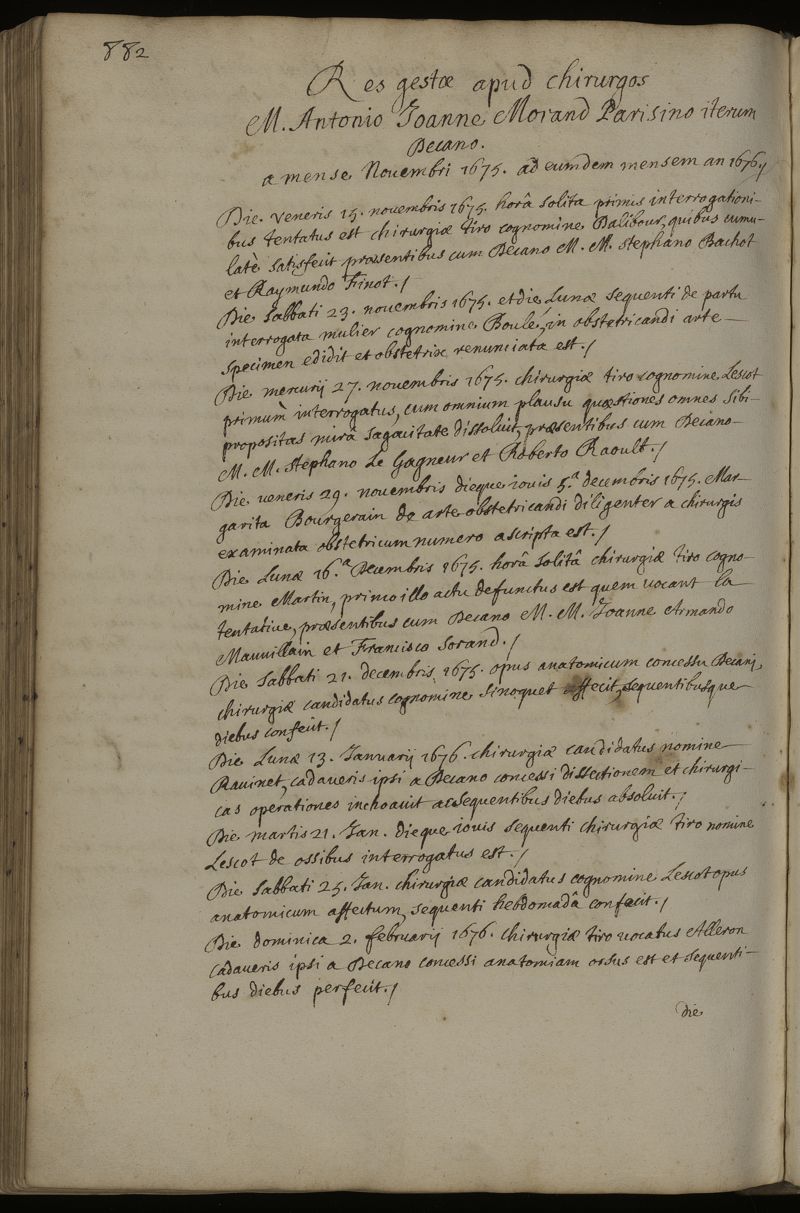 882
Res gestæ apud chirurgos
M. Antonio Joanne Morand Parisino iterum
Decano.
a mense Novembri 1675. ad eumdem mensem an 1676./
Die veneris 15. novembris 1675. horâ solita primis interrogationi-
bus tentatus est chirurgiæ tiro cognomine Dalibour, quibus cumu-
latè satisfecit præsentibus cum Decano M. M. stephano Bachot
et Raymundo Finot./
Die sabbati 23. novembris 1675. et die Lunæ sequenti de partu
interrogata mulier cognomine Boule, in obstetricandi arte
specimen edidit et obstetrix renunciata est./
Die mercurij 27. novembris 1675. chirurgiæ tiro cognomine Lescot
primùm interrogatus, cum omnium plausu quæstiones omnes sibi
propositas mira sagacitate dissoluit, præsentibus cum Decano
M. M. stephano Le Gagneur et Roberto Raoult./
Die veneris 29. novembris dieque iovis 5.a decembris 1675. Mar-
garita Bourgerain de arte obstetricandi diligenter a chirurgis
examinata obstetricum numero ascripta est./
Die Lunæ 16.a Decembris 1675. horâ solitâ chirurgiæ tiro cogno-
mine Martin, primo illo actu defunctus est quem vocant la
tentative, præsentibus cum Decano M. M. Joanne Armando
Mauvillain et Francisco Sorand./
Die sabbati 21. decembris 1675. opus anatomicum concessu Decanj
chirurgiæ candidatus cognomine Sinoquet affecit, sequentibusque
diebus confecit./
Die Lunæ 13. Januarij 1676. chirurgiæ candidatus nomine
Ravinet, cadaveris ipsi a Decano concessi dissectionem et chirurgi-
cas operationes inchoavit ac sequentibus diebus absoluit./
Die martis 21. Jan. dieque iovis sequenti chirurgiæ tiro nomine
Lescot de ossibus interrogatus est./
Die sabbati 25. Jan. chirurgiæ candidatus cognomine Lescot opus
anatomicum affectum, sequenti hebdomadâ confecit./
Die dominica 2. februarij 1676. chirurgiæ tiro vocatus Alleron
cadaveris ipsi a Decano concessi anatomiam orsus est et sequenti-
bus diebus perfecit./
die